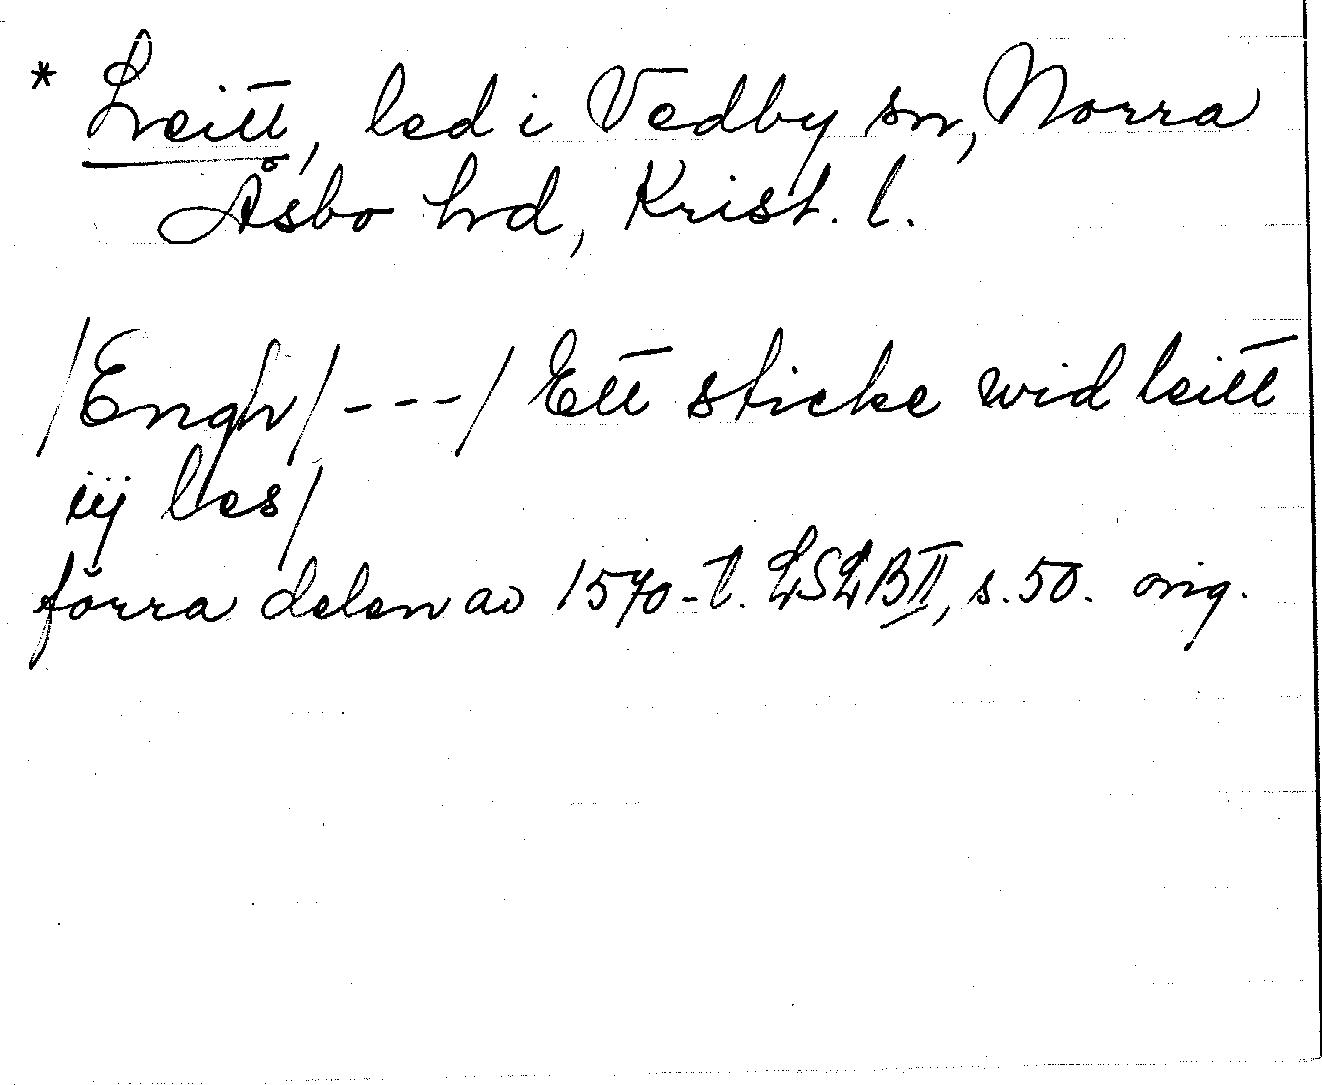 * Leitt, led i Vedby sn, Norra
Åsbo hrd, Krist. l.
/Engh/ - - - / Ett sticke wid leitt
iij les/
förra delen av 1570-t. LSLB II, s. 50. orig.